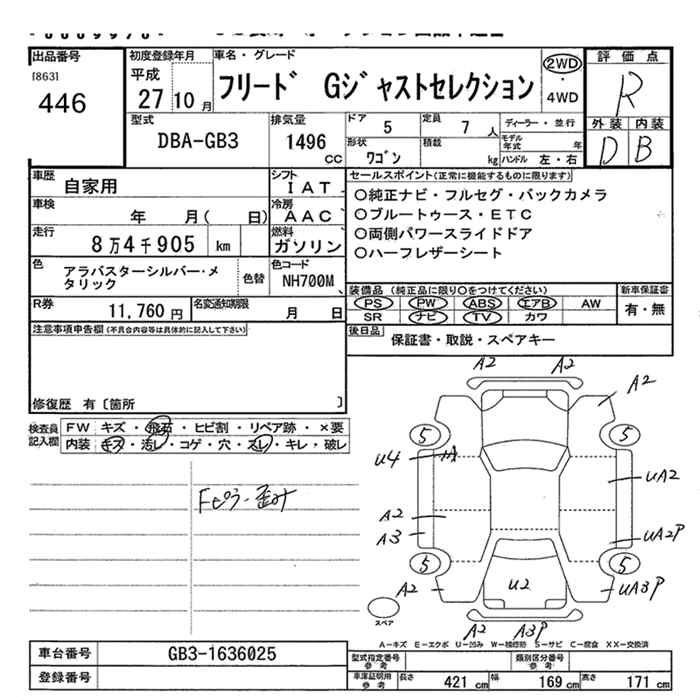 出品番号
[863]
446
初度登録年月
平成
27 10 月
車名・グレード
フリード Gジャストセレクション
2WD
・
4WD
評価点
R
外装 内装
D B
型式
DBA-GB3
排気量
1496
CC
ドア 5
定員 7 人
形状 ワゴン
積載 kg
ディーラー・並行
モデル年式 年
ハンドル 左・右
車歴 自家用
シフト IAT
車検 年 月( 日)
冷房 AAC
走行 8万4千905 km
燃料 ガソリン
色 アラバスターシルバー・メタリック
色替
色コード NH700M
R券 11,760 円
名変通知期限 月 日
セールスポイント(正常に機能するものに限ります)
○純正ナビ・フルセグ・バックカメラ
○ブルートゥース・ETC
○両側パワースライドドア
○ハーフレザーシート
装備品(純正品に限り○をつけてください)
PS PW ABS エアB AW
SR ナビ TV カワ
新車保証書
有・無
後日品 保証書・取説・スペアキー
注意事項申告欄(不具合内容等は具体的に記入して下さい)
修復歴 有〔箇所 〕
検査員記入欄
FW キズ・飛石・ヒビ割・リペア跡・×要
内装 キズ・汚レ・コゲ・穴・スレ・キレ・破レ
Fピラー歪み
A2 A2
A2
5 5
U4 A
UA2
A2
A3
UA2P
5 5
A2
U2
UA3P
スペア
A2 A3P
A-キズ E-エクボ U-凹み W-補修跡 S-サビ C-腐食 XX-交換済
車台番号 GB3-1636025
登録番号
型式指定番号参考
類別区分番号参考
車庫証明用参考 長さ 421 cm 幅 169 cm 高さ 171 cm